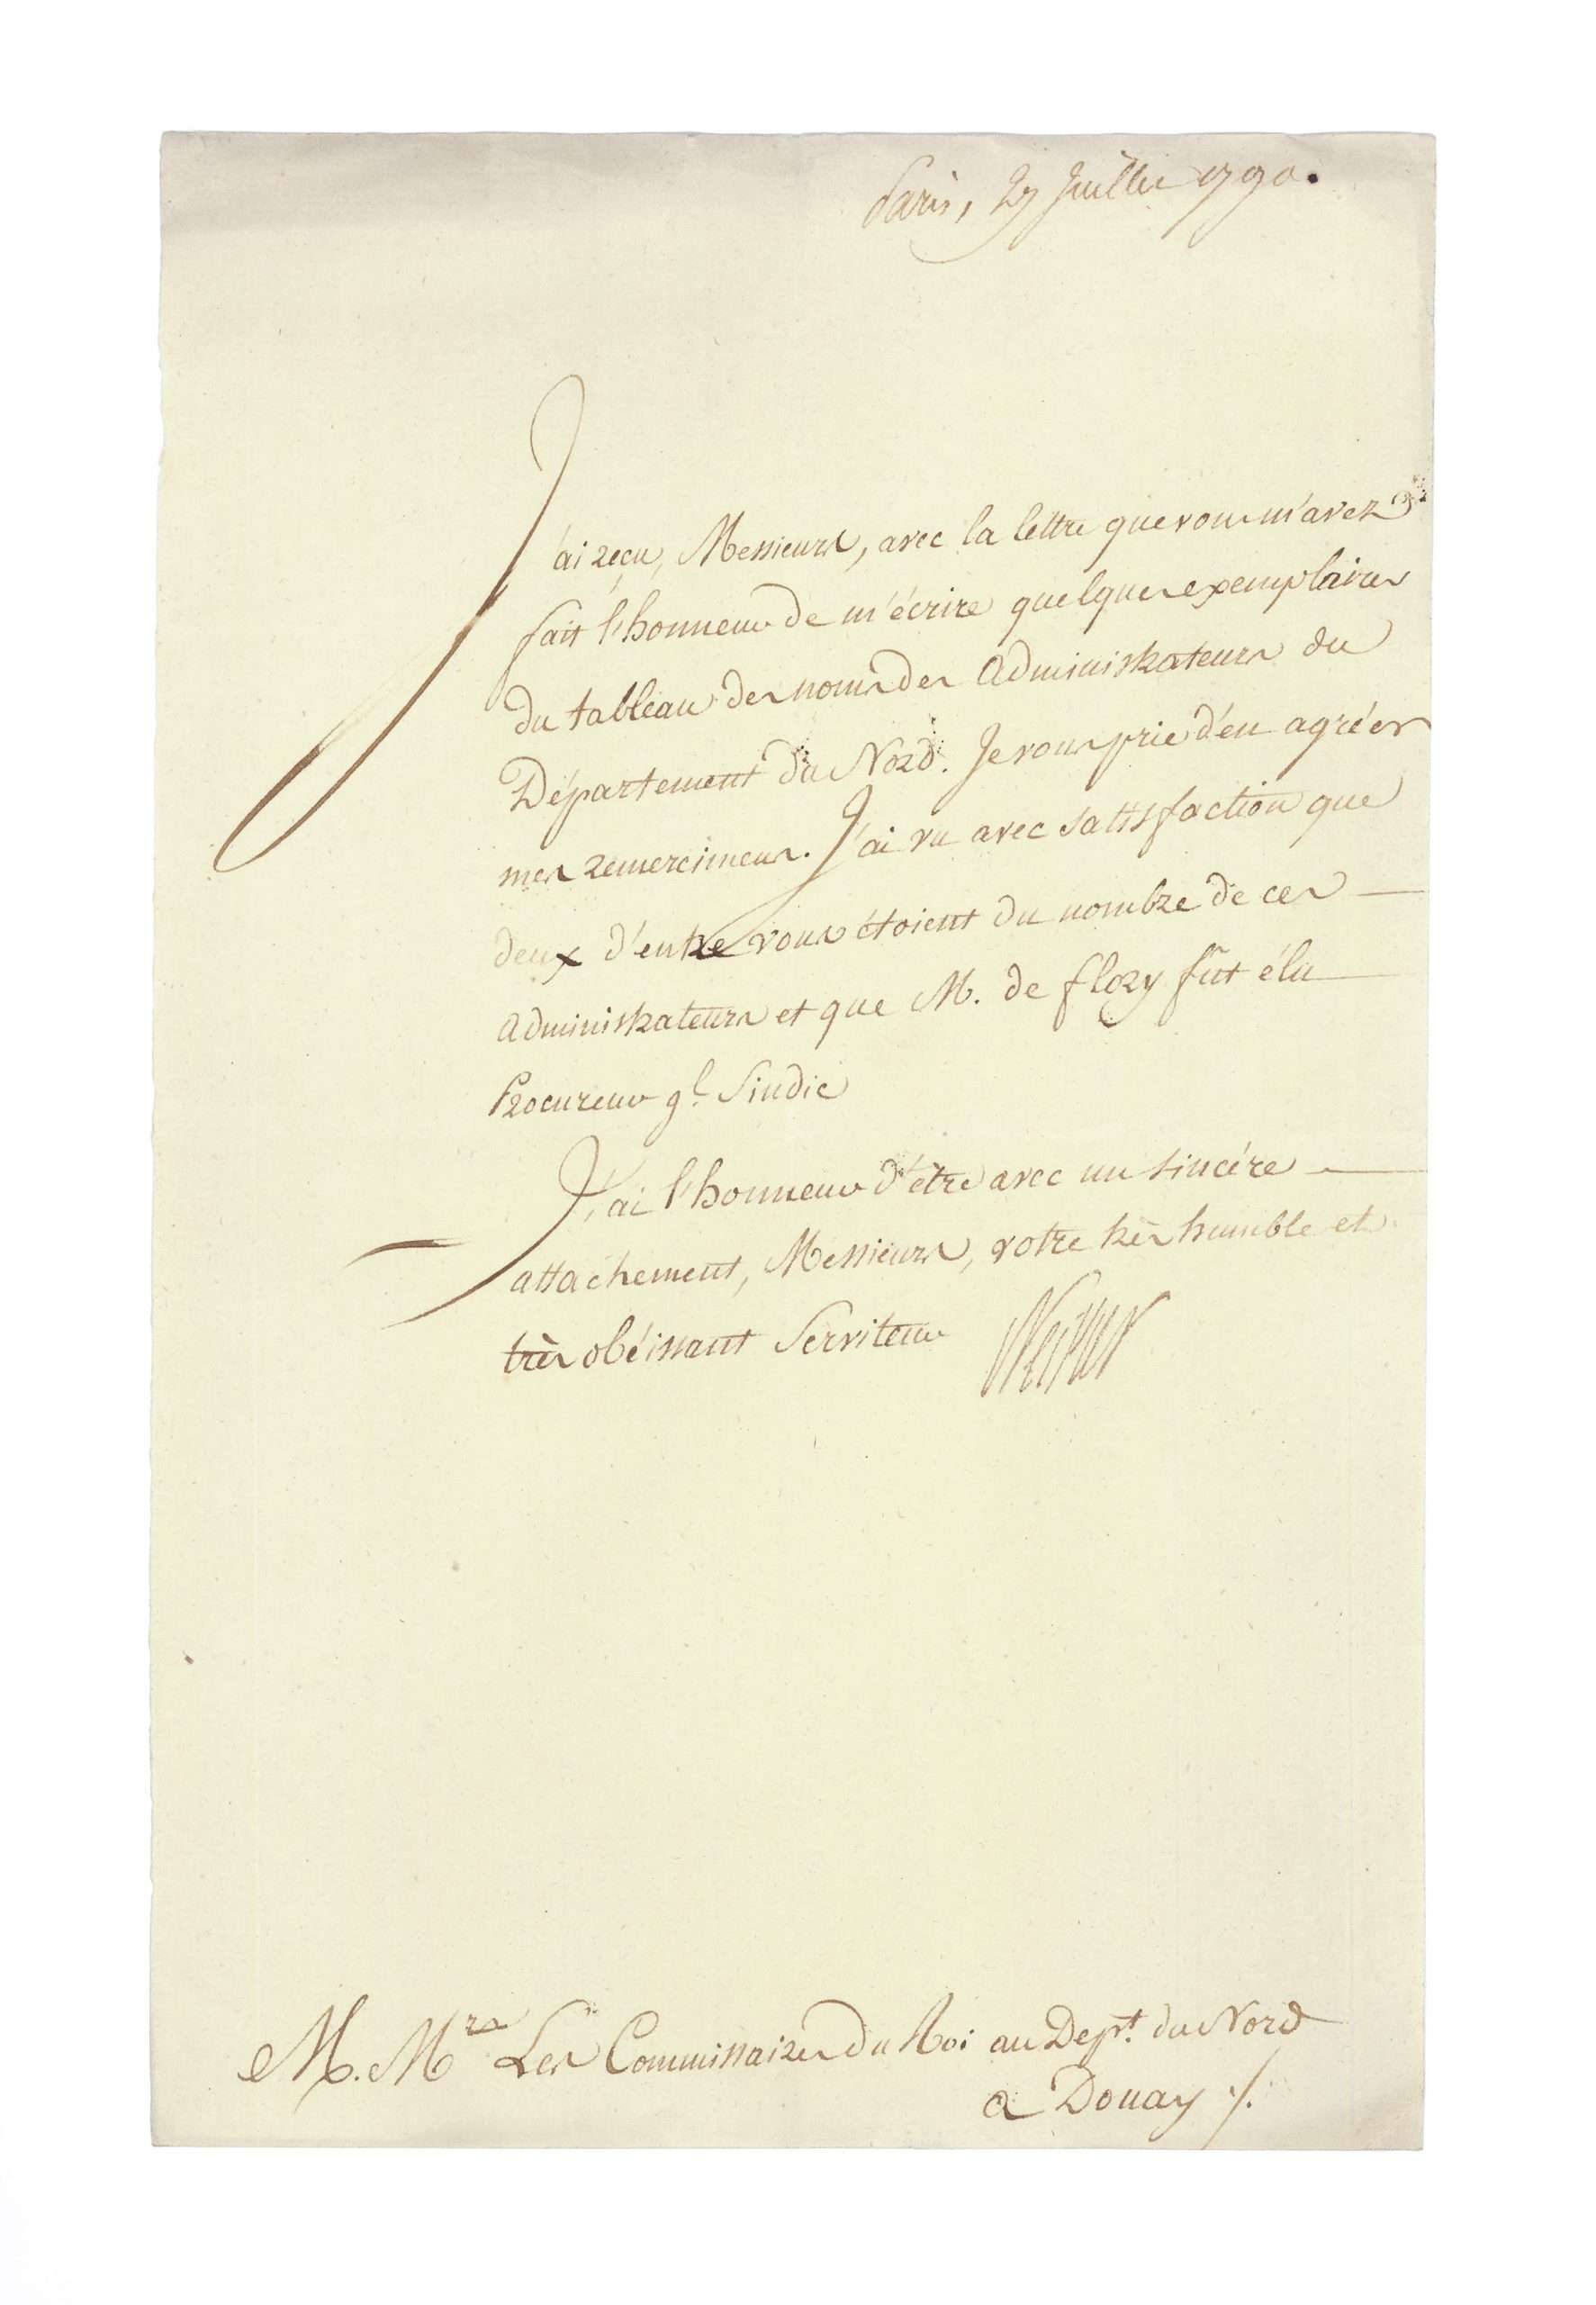 Paris, 27 Juillet 1790.
J'ai reçu, Messieurs, avec la lettre que vous m'avez
fait l'honneur de m'écrire quelques exemplaires
du tableau des noms des Administrateurs du
Département du Nord. Je vous prie d'en agréer
mes remercimens. J'ai vu avec satisfaction que
deux d'entre vous étoient du nombre de ces
Administrateurs et que M. de flory fût élu
Procureur gl. Sindic
J'ai l'honneur d'être avec un sincére
attachement, Messieurs, votre très humble et
très obéissant Serviteur Necker
M. Mrs Les Commissaires du Roi au Dept. du Nord
a Douay ./.